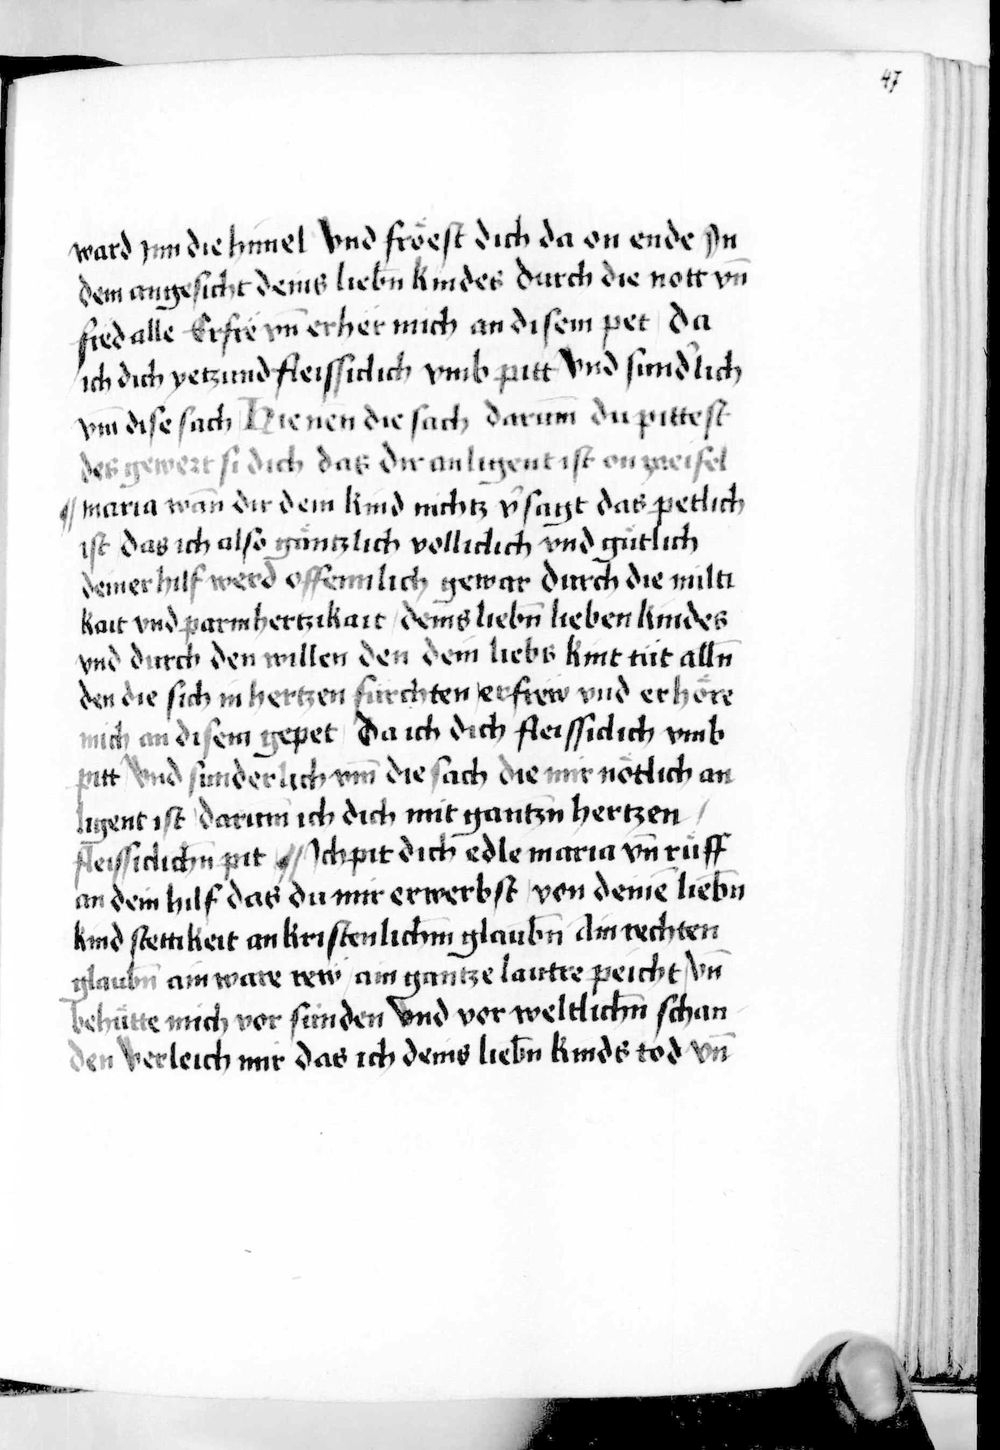 47
ward ynn die himel Vnd fröest dich da on ende Jn
dem angesicht deins liebn̄ kindes durch die nott vn̄
fred alle Erfre vn̄ erher mich an disem pet / Da
ich dich yetzund fleissiclich vmb pitt Vnd sund'lich
vm̄ dise sach Hie nen die sach darum̄ du pittest
des gewert si dich das dir anligent ist on zweifel
¶ maria wan̄ dir dein kind nichtz v'sagt das petlich
ist / das ich also gäntzlich volliclich vnd gütlich
deiner hilf werd offennlich gewar durch die milti
kait vnd parmhertzikait / deins liebn̄ lieben kindes
vnd durch den willen den dein liebs kint tüt alln̄
den die sich in hertzen fürchten / erfrew vnd erhöre
mich an disem gepet / Da ich dich fleissiclich vmb
pitt Vnd sunderlich vm̄ die sach die mir nötlich an
ligent ist / darum̄ ich dich mit gantzn̄ hertzen /
fleissiclichn̄ pit / ¶ Jch pit dich edle maria vn̄ rüff
an dein hilf das du mir erwerbst / von deinē liebn̄
kind stettikeit an kristenlichm̄ glaubn̄ Ain rechten
glaubn̄ ain ware rew / ain gantze lautre peicht / Vn̄
behütte mich vor sünden Vnd vor weltlichn̄ schan
den Verleich mir das ich deins liebn̄ kinds tod Vn̄